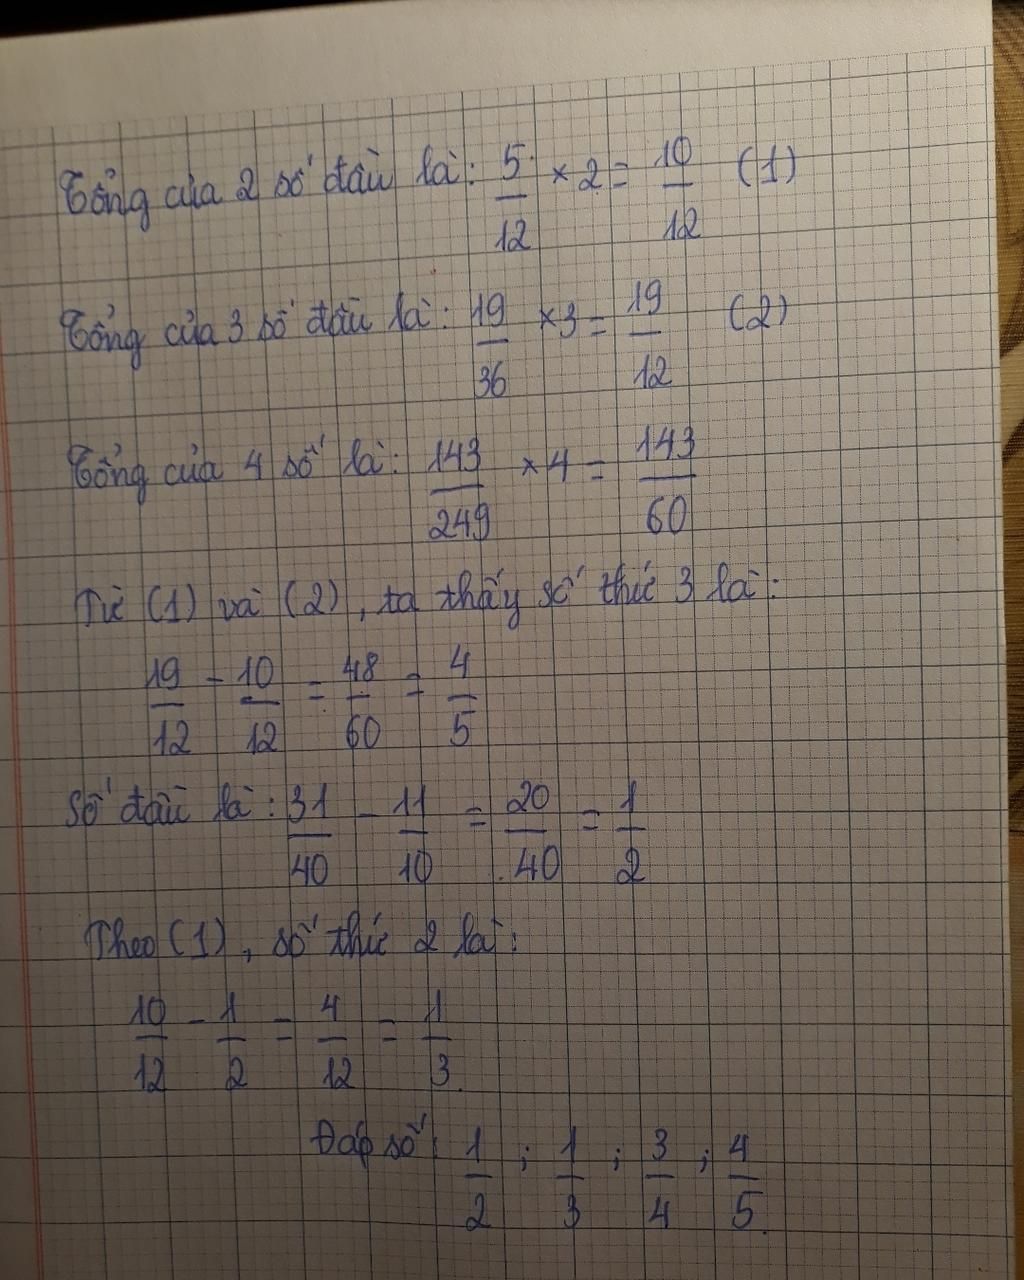 Tổng của 2 số đầu là: 5/12 × 2 = 10/12 (1)
Tổng của 3 số đầu là: 19/36 × 3 = 19/12 (2)
Tổng của 4 số là: 143/249 × 4 = 143/60
Từ (1) và (2), ta thấy số thứ 3 là:
19/12 - 10/12 = 48/60 = 4/5
Số đầu là: 31/40 - 11/10 = 20/40 = 1/2
Theo (1), số thứ 2 là:
10/12 - 1/2 = 4/12 = 1/3
Đáp số: 1/2 ; 1/3 ; 3/4 ; 4/5